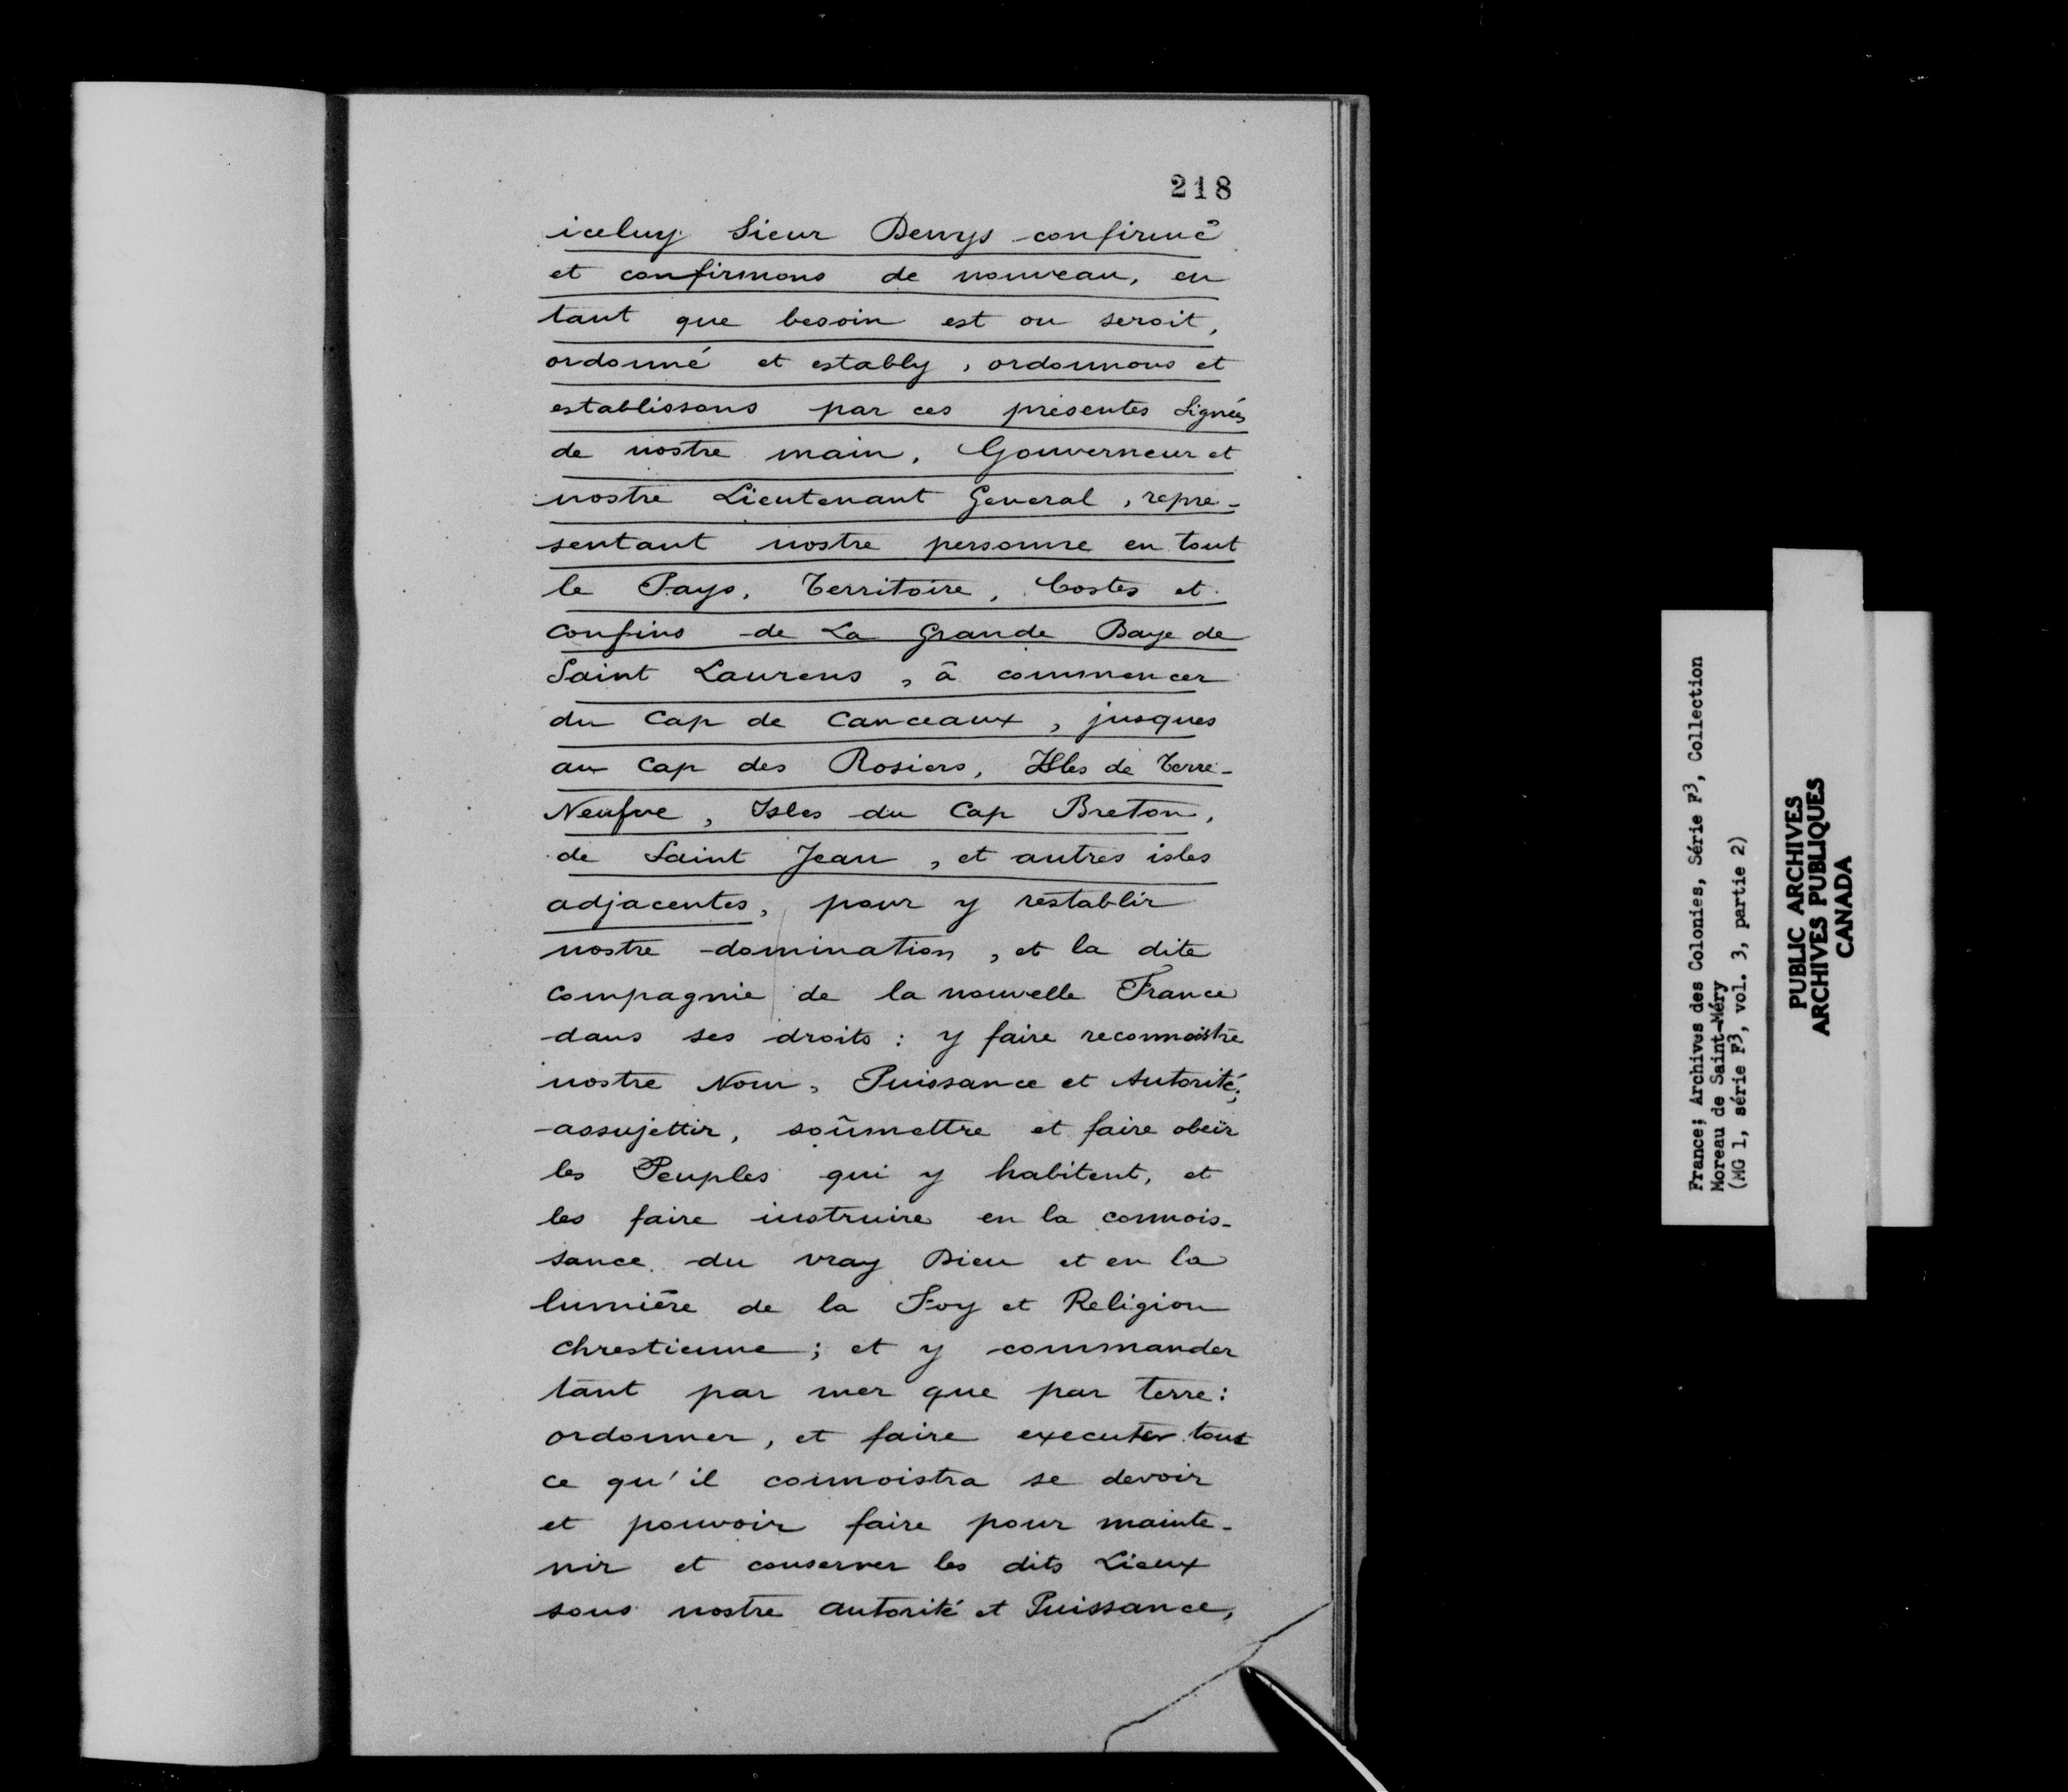 218
iceluy Sieur Denys confirmé
et confirmons de nouveau, en
tant que besoin est ou seroit,
ordonné et estably, ordonnons et
establissons par ces presentes signées
de nostre main, Gouverneur et
nostre Lieutenant General, repre-
sentant nostre personne en tout
le Pays, Territoire, Costes et
Confins de La Grande Baye de
Saint Laurens, à commencer
du Cap de Canceaux, jusques
au Cap des Rosiers, Isles de Terre-
Neufve, Isles du Cap Breton,
de Saint Jean, et autres isles
adjacentes, pour y restablir
nostre domination, et la dite
Compagnie de la nouvelle France
dans ses droits : y faire reconnoistre
nostre Nom, Puissance et Autorité;
assujettir, soûmettre et faire obeïr
les Peuples qui y habitent, et
les faire instruire en la connois-
sance du vray Dieu et en la
lumière de la Foy et Religion
Chrestienne ; et y commander
tant par mer que par terre :
ordonner, et faire executer tout
ce qu'il connoistra se devoir
et pouvoir faire pour mainte-
nir et conserver les dits Lieux
sous nostre autorité et Puissance,
France; Archives des Colonies, Série F3, Collection
Moreau de Saint-Méry
(MG 1, série F3, vol. 3, partie 2)
PUBLIC ARCHIVES
ARCHIVES PUBLIQUES
CANADA